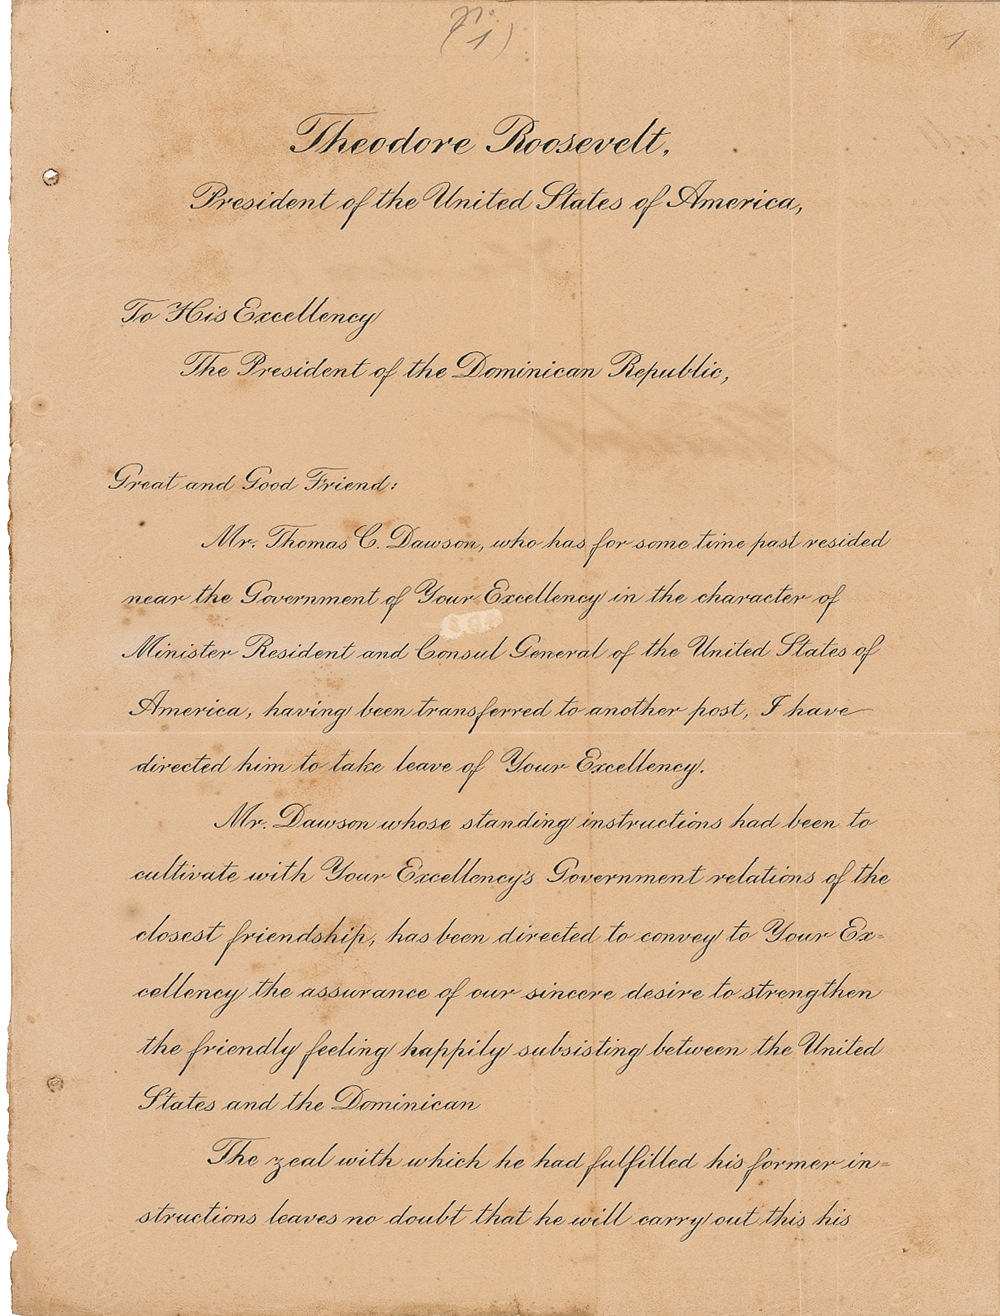 1
Theodore Roosevelt,
President of the United States of America,
To His Excellency
The President of the Dominican Republic,
Great and Good Friend:
Mr. Thomas C. Dawson, who has for some time past resided
near the Government of Your Excellency in the character of
Minister Resident and Consul General of the United States of
America, having been transferred to another post, I have
directed him to take leave of Your Excellency.
Mr. Dawson whose standing instructions had been to
cultivate with Your Excellency's Government relations of the
closest friendship, has been directed to convey to Your Ex=
cellency the assurance of our sincere desire to strengthen
the friendly feeling happily subsisting between the United
States and the Dominican
The zeal with which he had fulfilled his former in=
structions leaves no doubt that he will carry out this his